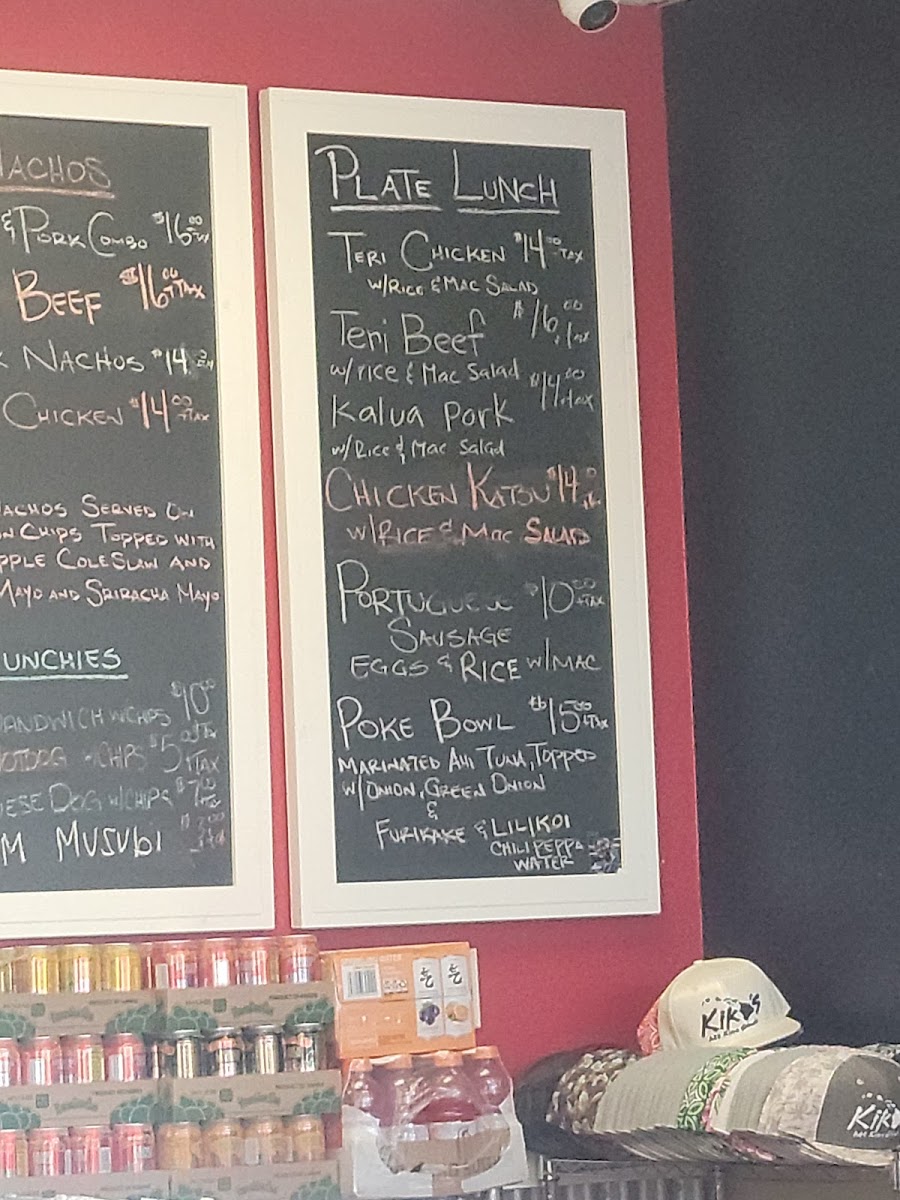 NACHOS
& PORK COMBO $16.00 +TAX
BEEF $16.00 +TAX
NACHOS $14
CHICKEN $14.00 +TAX
NACHOS SERVED ON
CHIPS TOPPED WITH
COLESLAW AND
MAYO AND SRIRACHA MAYO
UNCHIES
SANDWICH W/CHIPS $10.00
HOTDOG W/CHIPS $5 +TAX
DOG W/CHIPS $7.00
MUSUBI
PLATE LUNCH
TERI CHICKEN $14.00 +TAX
W/RICE & MAC SALAD
Teri Beef $16.00 +tax
w/rice & Mac Salad
Kalua pork $14.00 +tax
w/Rice & Mac Salad
CHICKEN KATSU $14
W/RICE & MAC SALAD
PORTUGUESE $10.00 +TAX
SAUSAGE
EGGS & RICE W/MAC
POKE BOWL $15.00 +TAX
MARINATED AHI TUNA, TOPPED
W/ONION, GREEN ONION
&
FURIKAKE & LILIKOI
CHILI PEPPA
WATER
KIKO'S
Kiko